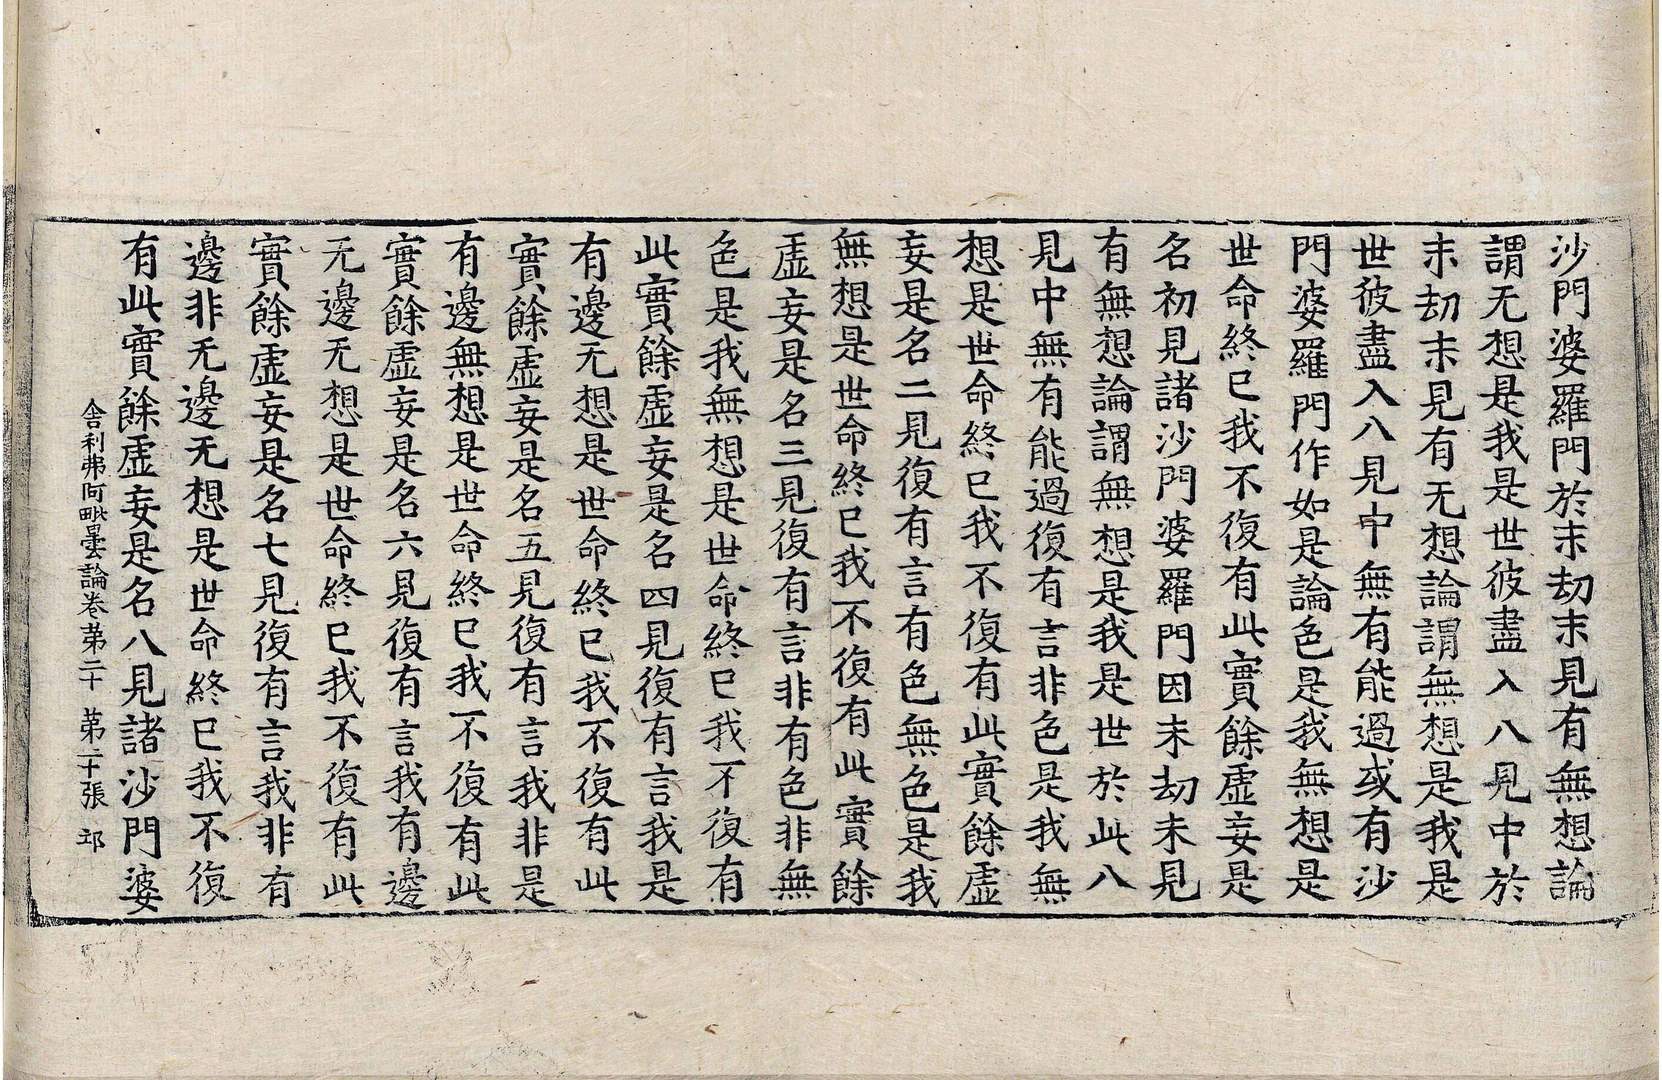 沙門婆羅門於末刧末見有無想論
謂无想是我是世彼盡入八見中於
末刧末見有无想論謂無想是我是
世彼盡入八見中無有能過或有沙
門婆羅門作如是論色是我無想是
世命終已我不復有此實餘虛妄是
名初見諸沙門婆羅門因末刧末見
有無想論謂無想是我是世於此八
見中無有能過復有言非色是我無
想是世命終已我不復有此實餘虛
妄是名二見復有言有色無色是我
無想是世命終已我不復有此實餘
虛妄是名三見復有言非有色非無
色是我無想是世命終已我不復有
此實餘虛妄是名四見復有言我是
有邊无想是世命終已我不復有此
實餘虛妄是名五見復有言我非是
有邊無想是世命終已我不復有此
實餘虛妄是名六見復有言我有邊
无邊无想是世命終已我不復有此
實餘虛妄是名七見復有言我非有
邊非无邊无想是世命終已我不復
有此實餘虛妄是名八見諸沙門婆
舍利弗阿毗曇論卷苐二十 苐二十張 邙